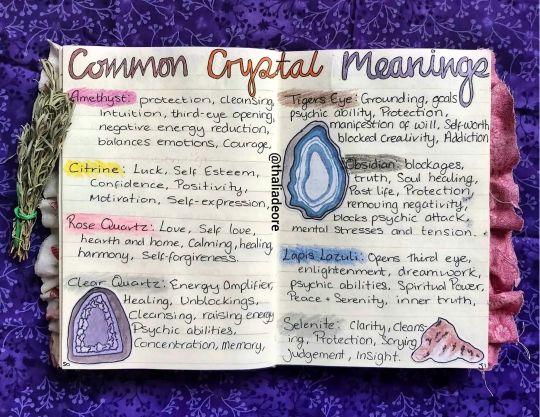 Common Crystal Meanings
Amethyst: protection, cleansing,
Intuition, third-eye opening,
negative energy reduction,
balances emotions, Courage.
Citrine: Luck, Self Esteem,
Confidence, Positivity,
Motivation, Self-expression.
Rose Quartz: Love, Self love,
hearth and home, Calming, healing,
harmony, Self-forgiveness.
Clear Quartz: Energy Amplifier,
Healing, Unblockings,
Cleansing, raising energy
Psychic abilities,
Concentration, Memory,
50
@thaliadeore
Tigers Eye: Grounding, goals
psychic ability, Protection,
manifestion of will, Self-worth
blocked Creativity, Addiction
Obsidian: blockages,
truth, Soul healing,
Past life, Protection,
removing negativity,
blocks psychic attack,
mental Stresses and tension.
Lapis Lazuli: Opens Third eye,
enlightenment, dreamwork,
psychic abilities, Spiritual Power,
Peace + Serenity, inner truth,
Selenite: Clarity, Cleans-
ing, Protection, Scrying
Judgement, Insight.
51